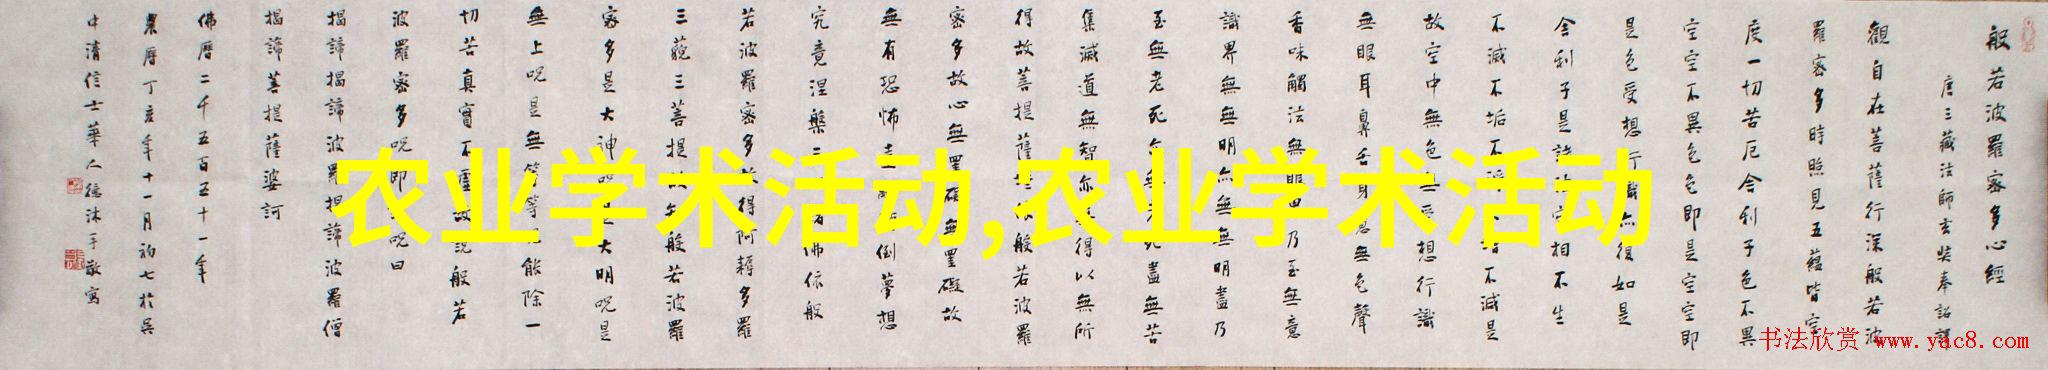 般若波羅密多心經
唐三藏法師玄奘奉詔譯
觀自在菩薩行深般若波
羅密多時照見五蘊皆空
度一切苦厄舍利子色不異
空空不異色色即是空空即
是色受想行識亦復如是
舍利子是諸法空相不生
不滅不垢不淨不增不減是
故空中無色無受想行識
無眼耳鼻舌身意無色聲
香味觸法無眼界乃至無意
識界無無明亦無無明盡乃
至無老死亦無老死盡無苦
集滅道無智亦無得以無所
得故菩提薩埵依般若波羅
密多故心無罣礙無罣礙故
無有恐怖遠離倒夢想
究竟涅槃三諸佛依般
若波羅密多故得阿耨多羅
三藐三菩提故知般若波羅
密多是大神呪是大明呪是
無上呪是無等等呪能除一
切苦真實不虛故說般若
波羅密多呪即說呪曰
揭諦揭諦波羅揭諦波羅僧
揭諦菩提薩婆訶
佛曆二千五百五十一年
農曆丁亥年十一月初七於吳
中清信士華人德沐手敬寫
农业学术活动,农业学术活动
书法欣赏 www.yac8.com